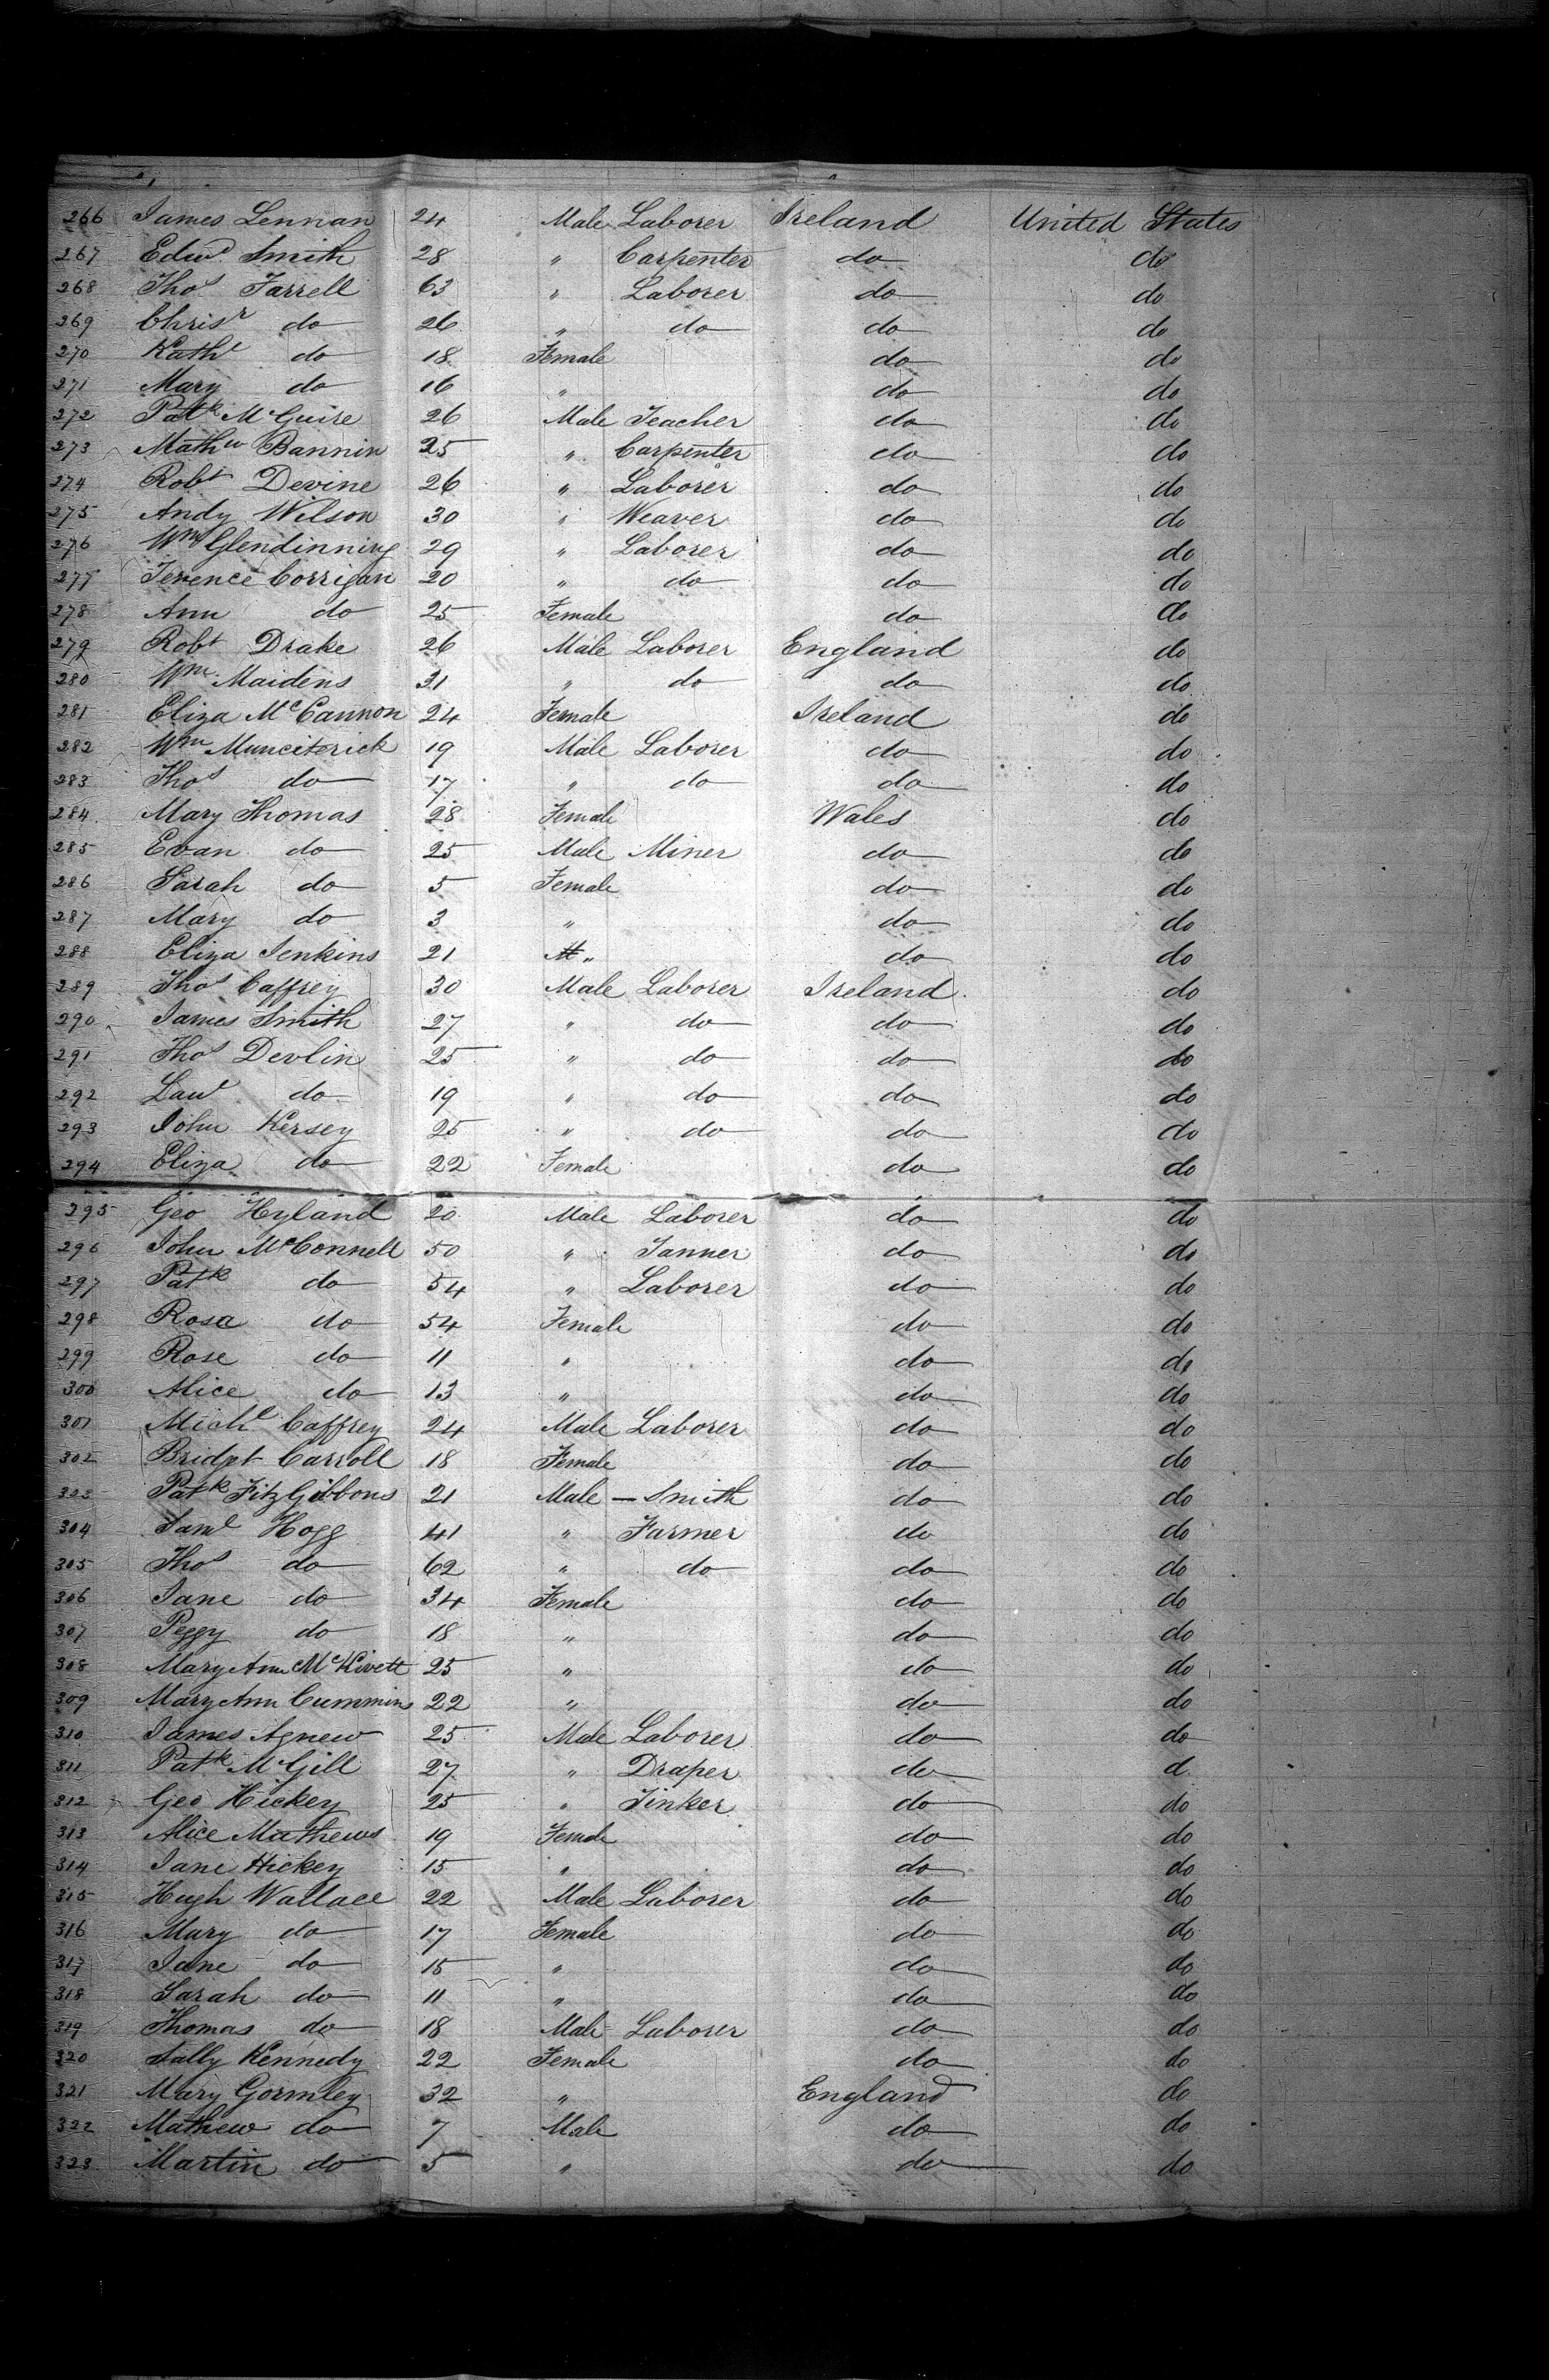 266 James Lennan 24 Male Laborer Ireland United States
267 Edwd Smith 28 " Carpenter do do
268 Thos Farrell 63 " Laborer do do
269 Chrisr do 26 " do do do
270 Kathe do 18 Female do do
271 Mary do 16 " do do
272 Patk McGuire 26 Male Teacher do do
273 Mathw Bannin 25 " Carpenter do do
274 Robt Devine 26 " Laborer do do
275 Andy Wilson 30 " Weaver do do
276 Wm Glendinning 29 " Laborer do do
277 Terence Corrigan 20 " do do do
278 Ann do 25 Female do do
279 Robt Drake 26 Male Laborer England do
280 Wm Maidens 31 " do do do
281 Eliza McCannon 24 Female Ireland do
282 Wm Munciterick 19 Male Laborer do do
283 Thos do 17 " do do do
284 Mary Thomas 28 Female Wales do
285 Evan do 25 Male Miner do do
286 Sarah do 5 Female do do
287 Mary do 3 " do do
288 Eliza Jenkins 21 " do do
289 Thos Caffrey 30 Male Laborer Ireland do
290 James Smith 27 " do do do
291 Thos Devlin 25 " do do do
292 Law do 19 " do do do
293 John Kersey 25 " do do do
294 Eliza do 22 Female do do
295 Geo Hyland 20 Male Laborer do do
296 John McConnell 50 " Tanner do do
297 Patk do 54 " Laborer do do
298 Rosa do 54 Female do do
299 Rose do 11 " do do
300 Alice do 13 " do do
301 Michl Caffrey 24 Male Laborer do do
302 Bridget Carroll 18 Female do do
323 Patk FitzGibbons 21 Male — Smith do do
304 Saml Hogg 41 " Farmer do do
305 Thos do 62 " do do do
306 Jane do 34 Female do do
307 Peggy do 18 " do do
308 Mary Ann McKivett 25 " do do
309 Mary Ann Cummins 22 " do do
310 James Agnew 25 Male Laborer do do
311 Patk McGill 27 " Draper do d
312 Geo Hickey 25 " Tinker do do
313 Alice Mathews 19 Female do do
314 Jane Hickey 15 " do do
315 Hugh Wallace 22 Male Laborer do do
316 Mary do 17 Female do do
317 Jane do 15 " do do
318 Sarah do 11 " do do
319 Thomas do 18 Male Laborer do do
320 Sally Kennedy 22 Female do do
321 Mary Gormley 32 " England do
322 Mathew do 7 Male do do
323 Martin do 5 " do do